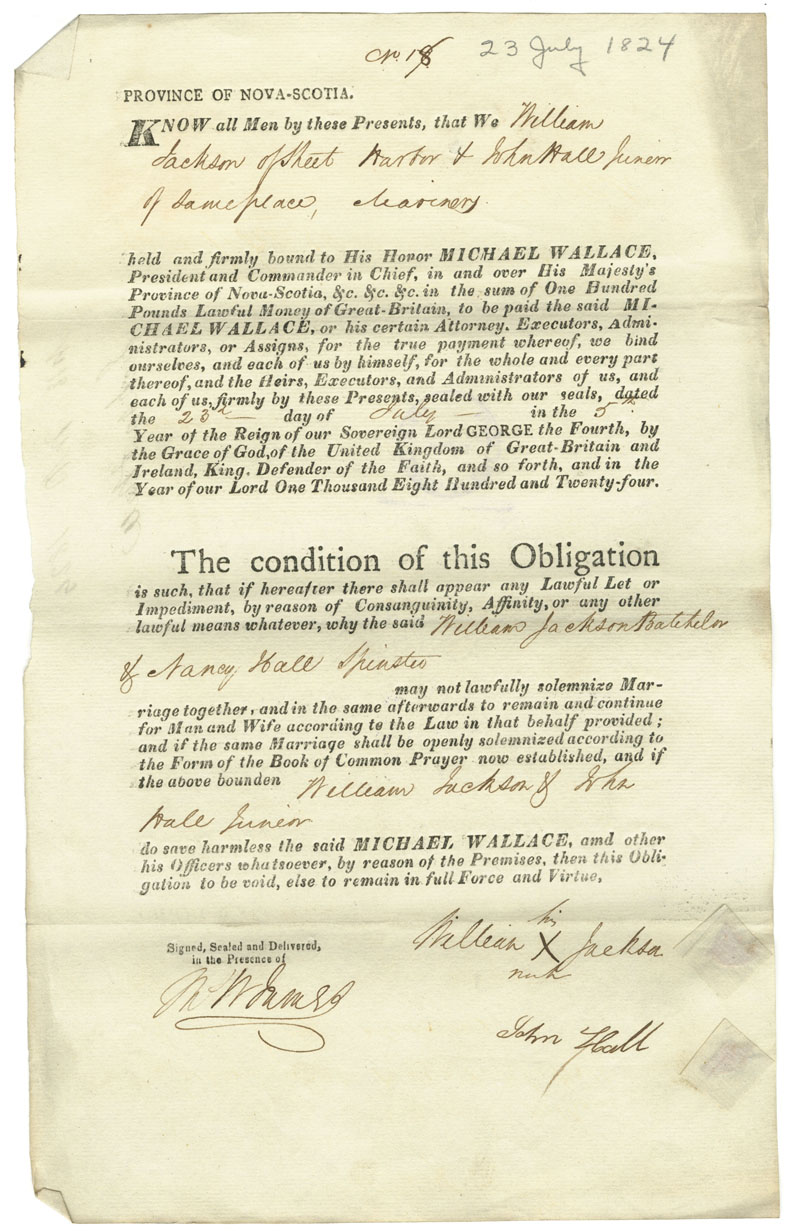 No. 18 23 July 1824
PROVINCE OF NOVA-SCOTIA.
KNOW all Men by these Presents, that We William
Jackson of Sheet Harbor & John Hall Junior
of Same place, Mariners
held and firmly bound to His Honor MICHAEL WALLACE,
President and Commander in Chief, in and over His Majesty's
Province of Nova-Scotia, &c. &c. &c. in the sum of One Hundred
Pounds Lawful Money of Great-Britain, to be paid the said MI-
CHAEL WALLACE, or his certain Attorney. Executors, Admi-
nistrators, or Assigns, for the true payment whereof, we bind
ourselves, and each of us by himself, for the whole and every part
thereof, and the Heirs, Executors, and Administrators of us, and
each of us, firmly by these Presents, sealed with our seals, dated
the 23d day of July in the 5th
Year of the Reign of our Sovereign Lord GEORGE the Fourth, by
the Grace of God, of the United Kingdom of Great-Britain and
Ireland, King. Defender of the Faith, and so forth, and in the
Year of our Lord One Thousand Eight Hundred and Twenty-four.
The condition of this Obligation
is such, that if hereafter there shall appear any Lawful Let or
Impediment, by reason of Consanguinity, Affinity, or any other
lawful means whatever, why the said William Jackson Batchelor
& Nancy Hall Spinster
may not lawfully solemnize Mar-
riage together, and in the same afterwards to remain and continue
for Man and Wife according to the Law in that behalf provided;
and if the same Marriage shall be openly solemnized according to
the Form of the Book of Common Prayer now established, and if
the above bounden William Jackson & John
Hall Junior
do save harmless the said MICHAEL WALLACE, amd other
his Officers whatsoever, by reason of the Premises, then this Obli-
gation to be void, else to remain in full Force and Virtue,
Signed, Sealed and Delivered,
in the Presence of
his
William X Jackson
mark
John Hall